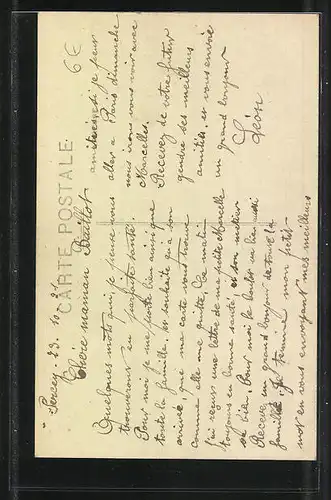 6€
CARTE POSTALE
23.10.21
Chère maman
Quelques mots qui, je pense vous
trouverons en parfaite santé.
Pour moi je me porte bien ainsi que
toute la famille, et souhaite qu'à son
arrivée, que ma carte vous trouve
comme elle me quitte. Ce matin
j'ai reçus une lettre de ma petite Marcelle
toujours en bonne santé et son métier
va bien. Pour moi le boulot va bien aussi
Recevez un grand bonjour de toute la
famille. Je termine mon petit
mot en vous envoyant mes meilleurs
amitiés si je peux
aller a Paris dimanche
nous irons vous voir avec
Marcelle.
Recevez de votre futur
gendre ses meilleurs
amitiés, et vous envoie
un grand bonjour
Léon